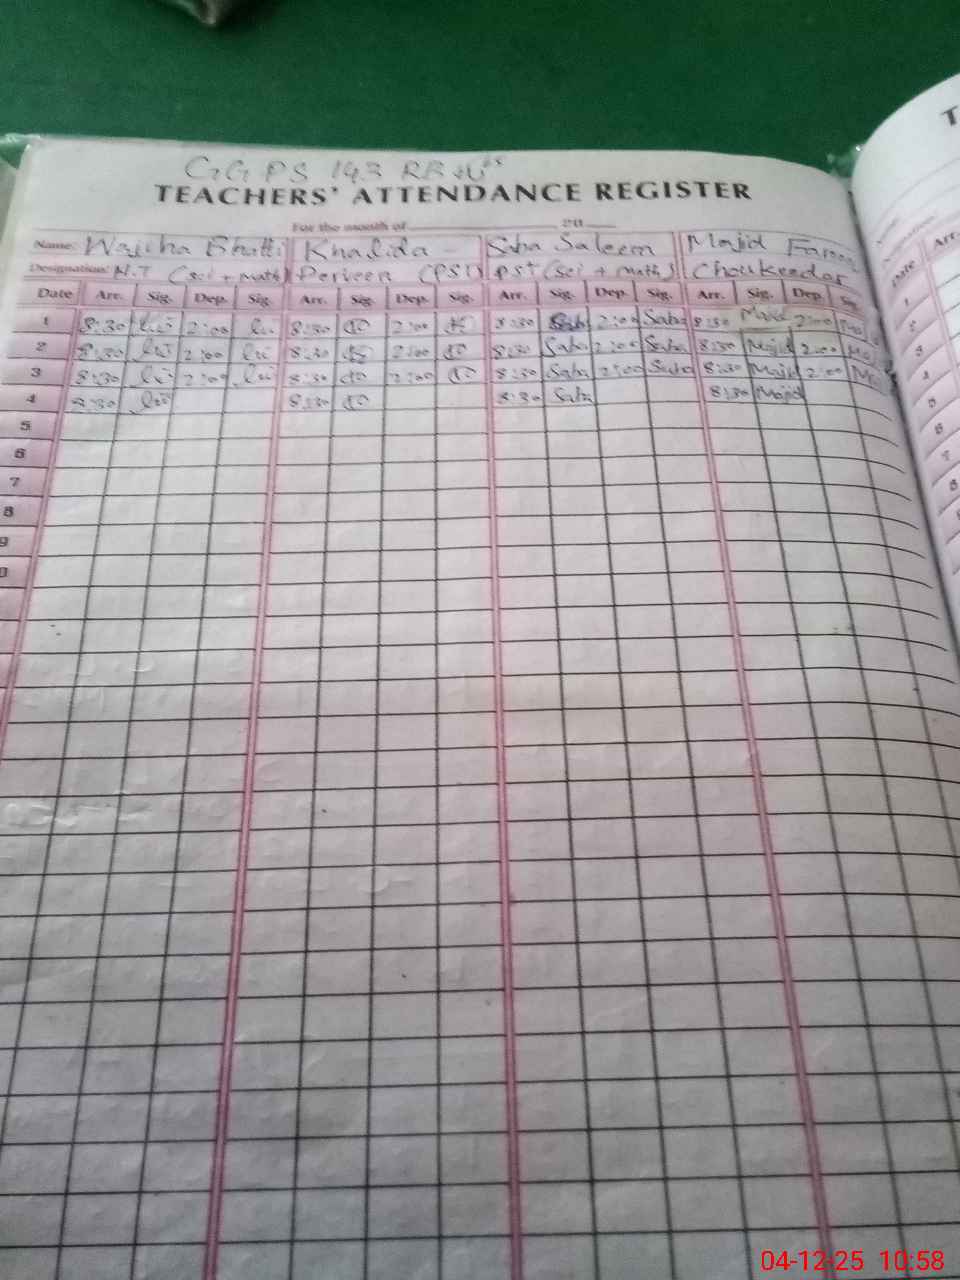 GGPS 143 RB
TEACHERS' ATTENDANCE REGISTER
For the month of 20
Name: Wajiha Bhatti Khalida Saba Saleem Majid
Designation: H.T (Sci + math) Perveen (PST) PST (Sci + math) Choukeedar
Date Arr. Sig. Dep. Sig. Arr. Sig. Dep. Sig. Arr. Sig. Dep. Sig. Arr. Sig. Dep. Sig.
1 8:30 2:00 8:30 2:00 8:30 Saba 2:00 Saba 8:30 Majid 2:00
2 8:30 2:00 8:30 2:00 8:30 Saba 2:00 Saba 8:30 Majid 2:00
3 8:30 2:00 8:30 2:00 8:30 Saba 2:00 Saba 8:30 Majid 2:00
4 8:30 8:30 8:30 Saba 8:30 Majid
5
6
7
8
9
T
Date Arr.
1
2
3
4
5
6
7
8
04-12-25 10:58